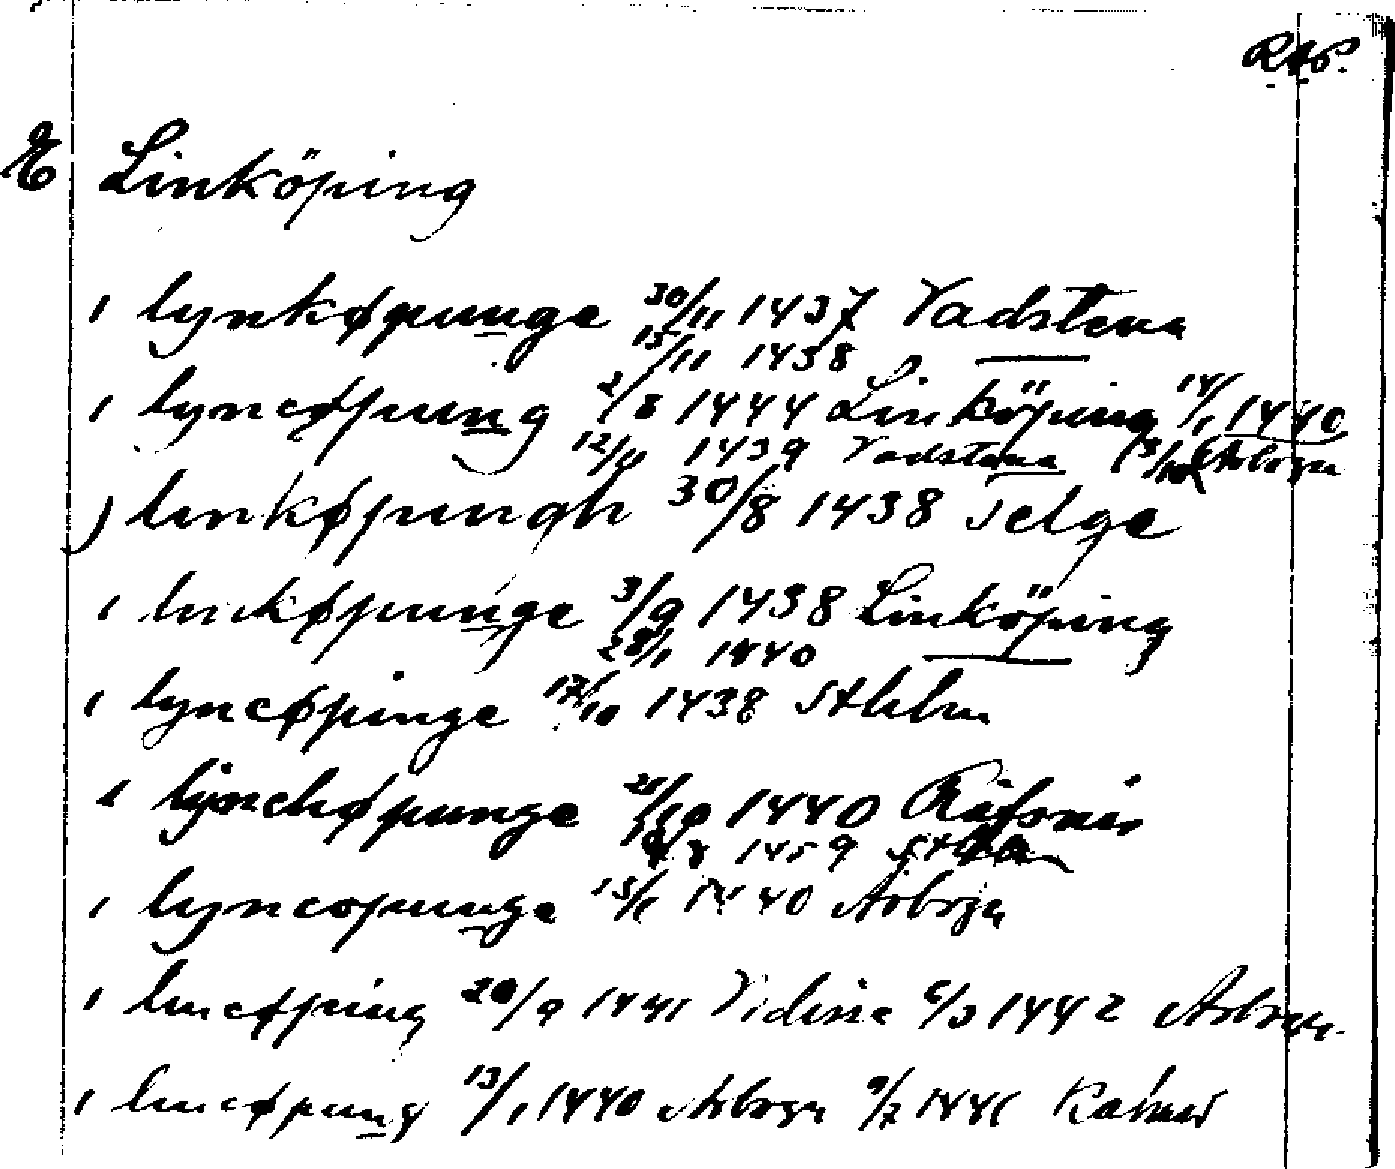 RAP.
E Linköping
i lynkøpunge 30/11 1437 Vadstena
15/11 1438
i lyncøpung 2/8 1444 Linköping 14/1 1440
12/11 1439 Vadstena 13/10 Arboga
j linkøpungh 30/8 1438 Telge
i linkøpunge 3/9 1438 Linköping
28/1 1440
i lyncøpinge 17/10 1438 Sthlm
i lynchøpunge 1440 Räfsnäs
1459 Sthlm
i lyncopunge 15/1 1440 Arboga
i lincøping 20/9 1441 6/3 1442 Arboga
i lincøpung 13/1 1440 Arboga 9/7 1441 Kalmar